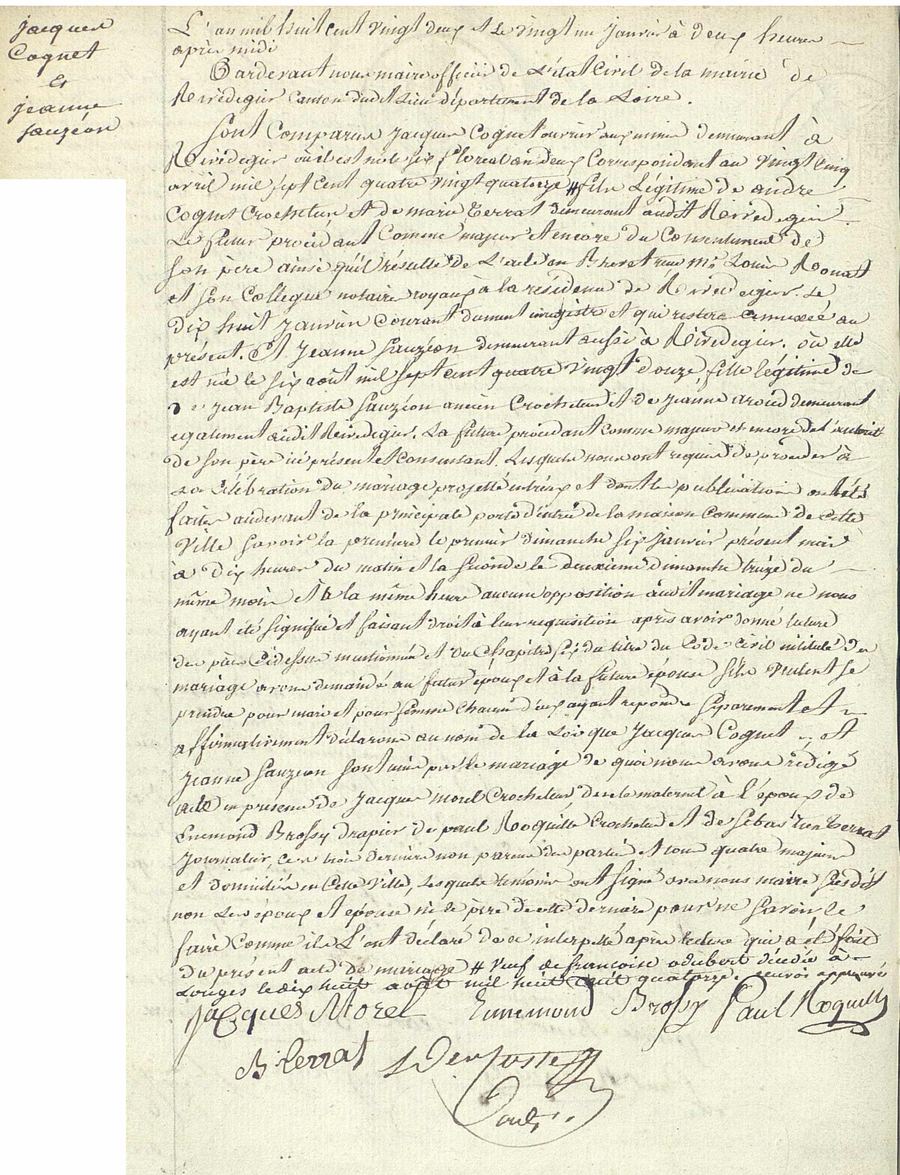 Jacques
Coquet
Et
jeanne
sauzéon
L'an mil huit cent vingt deux et Le vingt un janvier à deux heures
après midi
Pardevant nous maire officier de L'état Civil de la mairie de
Rivedegier Canton dudit Lieu département de la Loire.
Sont Comparus Jacques Coquet ouvrier aux mines demeurant à
Rivedegier où il est né le six floreal an deux Correspondant au vingt cinq
avril mil sept cent quatre vingt quatorze # fils Légitime de andré
Coquet Crocheteur Et de marie Terrat demeurant audit Rivedegier
Le futur procédant Comme majeur et encore du Consentement de
son père ainsi qu'il résulte de L'acte en Brevet reçu Me Louis
et son Collègue notaire royaux à la résidence de Rivedegier. Le
dix huit Janvier Courant dument enregistré et qui restera annexée au
présent. Et Jeanne Sauzéon demeurant aussi à Rivedegier. où elle
est née le six août mil sept cent quatre vingt douze, fille légitime de
Jean Baptiste Sauzéon ancien Crocheteur Et de Jeanne demeurant
egalement audit Rivedegier. La future procédant comme majeure et encore de l'autorité
de son père ici présent et consentant. Lesquels nous ont requis de procéder à
La Célébration du mariage projetté entre eux et dont les publications ont été
faites audevant de la principale porte d'entrée de la maison Commune de cette
Ville savoir la première le premier dimanche six Janvier présent mois
à dix heures du matin et la seconde le deuxième dimanche treize du
même mois et à la même heure aucune opposition audit mariage ne nous
ayant été signifiée et faisant droit à leur requisition après avoir donné lecture
des pièces Cidessus mentionnées et du Chapitre six du titre du Code Civil intitulé du
mariage avons demandé au futur époux et à la future épouse s'ils veulent se
prendre pour mari et pour femme chacun d'eux ayant repondu séparement et
affirmativement déclarons au nom de la Loi que Jacques Coquet et
Jeanne Sauzéon sont unis par le mariage de quoi nous avons rédigé
acte en présence de Jacques morel Crocheteur, maternel à l'époux de
Ennemond Brossy drapier de paul Roquille Crocheteur et de Sébastien Terrat
Journalier, ces trois derniers non parens des parties et tous quatre majeurs
et domiciliés en Cette Ville, Lesquels témoins ont signé avec nous maire susdit
non Les époux et épouse ni le père de cette dernière pour ne savoir le
faire Comme ils L'ont déclaré de ce interpellé après lecture qui a été faite
du présent acte de mariage # veuf de françoise décédée à
Louges le dix huit août mil huit cent quatorze. renvoi approuvé
Jacques Morel Ennemond Brossy Paul Roquille
B Terrat